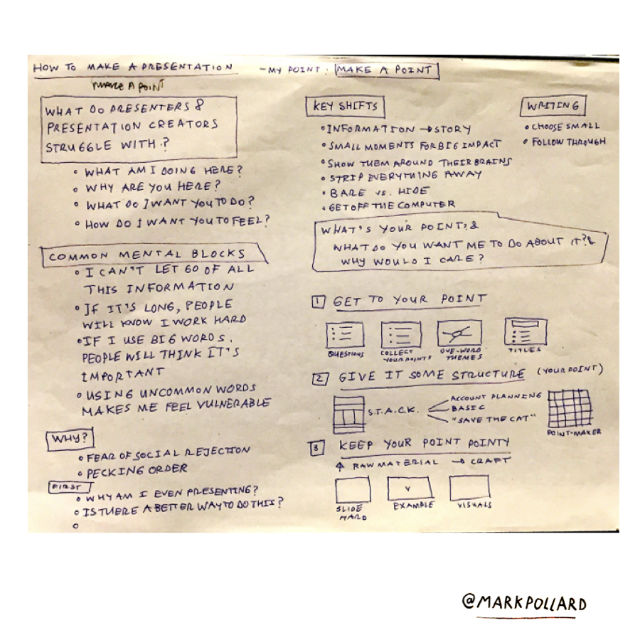 HOW TO MAKE A PRESENTATION - MY POINT: MAKE A POINT
MAKE A POINT
WHAT DO PRESENTERS &
PRESENTATION CREATORS
STRUGGLE WITH?
• WHAT AM I DOING HERE?
• WHY ARE YOU HERE?
• WHAT DO I WANT YOU TO DO?
• HOW DO I WANT YOU TO FEEL?
COMMON MENTAL BLOCKS
• I CAN'T LET GO OF ALL
THIS INFORMATION
• IF IT'S LONG, PEOPLE
WILL KNOW I WORK HARD
• IF I USE BIG WORDS,
PEOPLE WILL THINK IT'S
IMPORTANT
• USING UNCOMMON WORDS
MAKES ME FEEL VULNERABLE
WHY?
• FEAR OF SOCIAL REJECTION
• PECKING ORDER
FIRST
• WHY AM I EVEN PRESENTING?
• IS THERE A BETTER WAY TO DO THIS?
KEY SHIFTS
• INFORMATION → STORY
• SMALL MOMENTS FOR BIG IMPACT
• SHOW THEM AROUND THEIR BRAINS
• STRIP EVERYTHING AWAY
• BARE VS. HIDE
• GET OFF THE COMPUTER
WRITING
• CHOOSE SMALL
• FOLLOW THROUGH
WHAT'S YOUR POINT? &
WHAT DO YOU WANT ME TO DO ABOUT IT? &
WHY WOULD I CARE?
1 GET TO YOUR POINT
QUESTIONS
COLLECT
YOUR POINTS
ONE-WORD
THEMES
TITLES
2 GIVE IT SOME STRUCTURE (YOUR POINT)
S.T.A.C.K.
ACCOUNT PLANNING
BASIC
"SAVE THE CAT"
POINT-MAKER
3 KEEP YOUR POINT POINTY
↑ RAW MATERIAL → CRAFT
SLIDE
HARD
EXAMPLE
VISUALS
@MARKPOLLARD